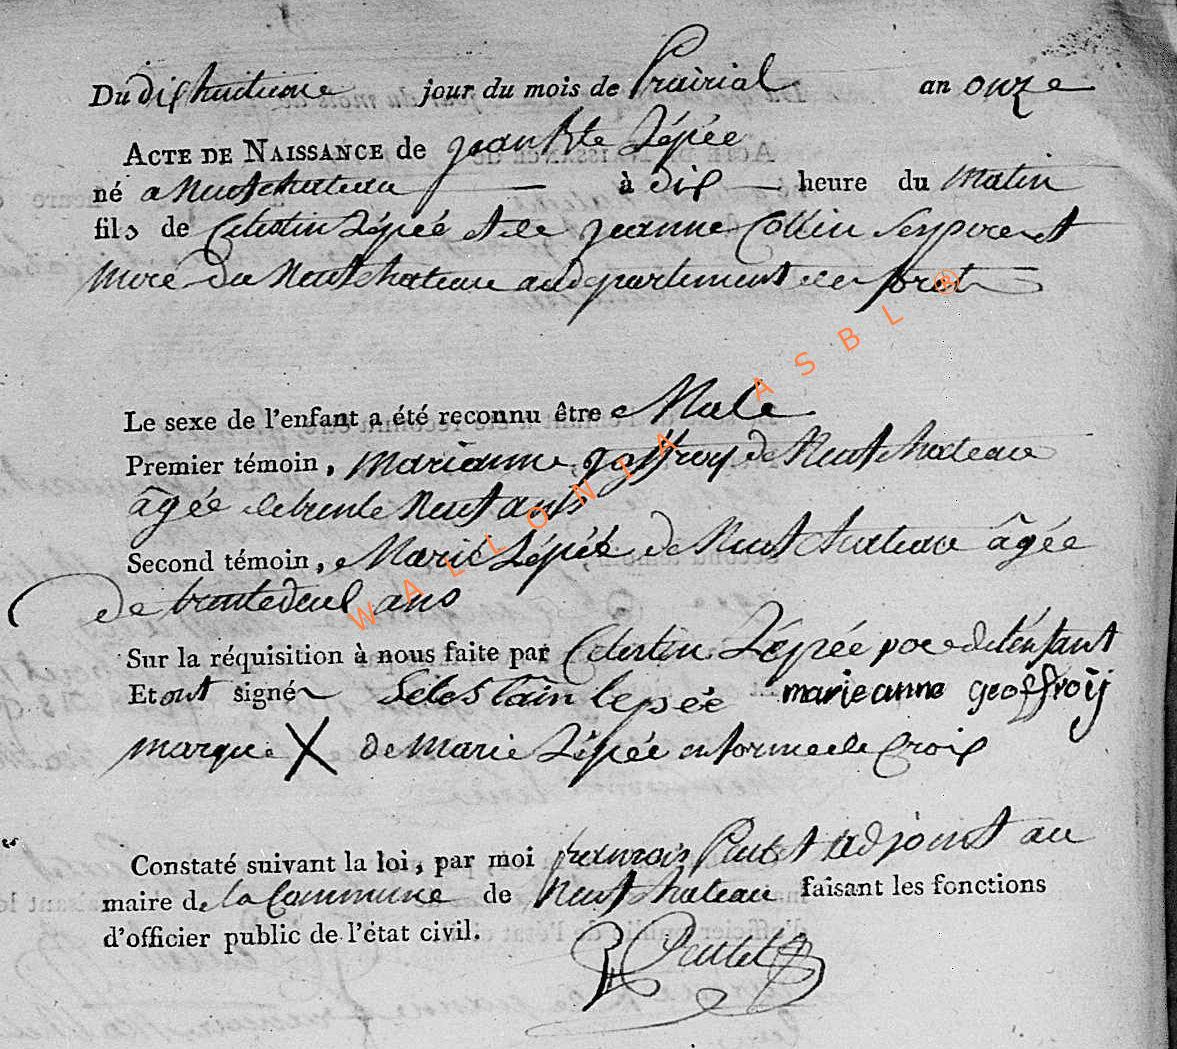 Du dishuitieme jour du mois de Prairial an onze
ACTE DE NAISSANCE de jean Bte Lépée
né a Neufchateau à dix heure du Matin
fils de Celestin Lépée et de jeanne Collin ses pere et
mere de Neufchateau au departement des foret
Le sexe de l'enfant a été reconnu être Male
Premier témoin, marianne joffroy de Neufchateau
âgée de trente Neuf ans
Second témoin, Marie Lépée de Neufchateau âgée
de trentedeux ans
Sur la réquisition à nous faite par Celestin Lépée pere de l'enfant
Et ont signér Selestain lepsée marieanne geoffroÿ
marque X de Marie Lépée en forme de Croix
Constaté suivant la loi, par moi francois Pautet adjoint au
maire de la Commune de Neufchateau faisant les fonctions
d'officier public de l'état civil.
Pautet
WALLONIA ASBL ®